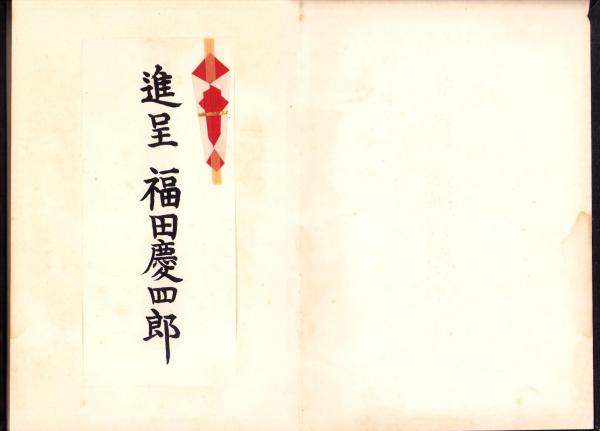 進呈 福田慶四郎